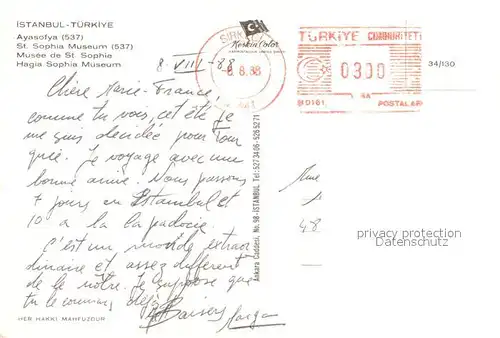 İSTANBUL-TÜRKİYE
Ayasofya (537)
St. Sophia Museum (537)
Musée de St. Sophie
Hagia Sophia Museum
8-VIII-88
Keskin Color
SİRK
8.8.88
TÜRKİYE CUMHURİYETİ
0300
POSTALARI
34/130
Chère Marie-France,
comme tu vois, cet été je
me suis decidée pour Tour
quie. Je voyage avec une
bonne amie. Nous passons
7 jours en Istambul et
10 a la Capadocie.
C'est un monde extraor
dinaire et assez different
de le nôtre. Je suppose que
tu le connais déjà.
Baisers
HER HAKKI MAHFUZDUR
Ankara Caddesi, No. 98-İSTANBUL Tel: 5273406-5265271
Mme
48
privacy protection
Datenschutz